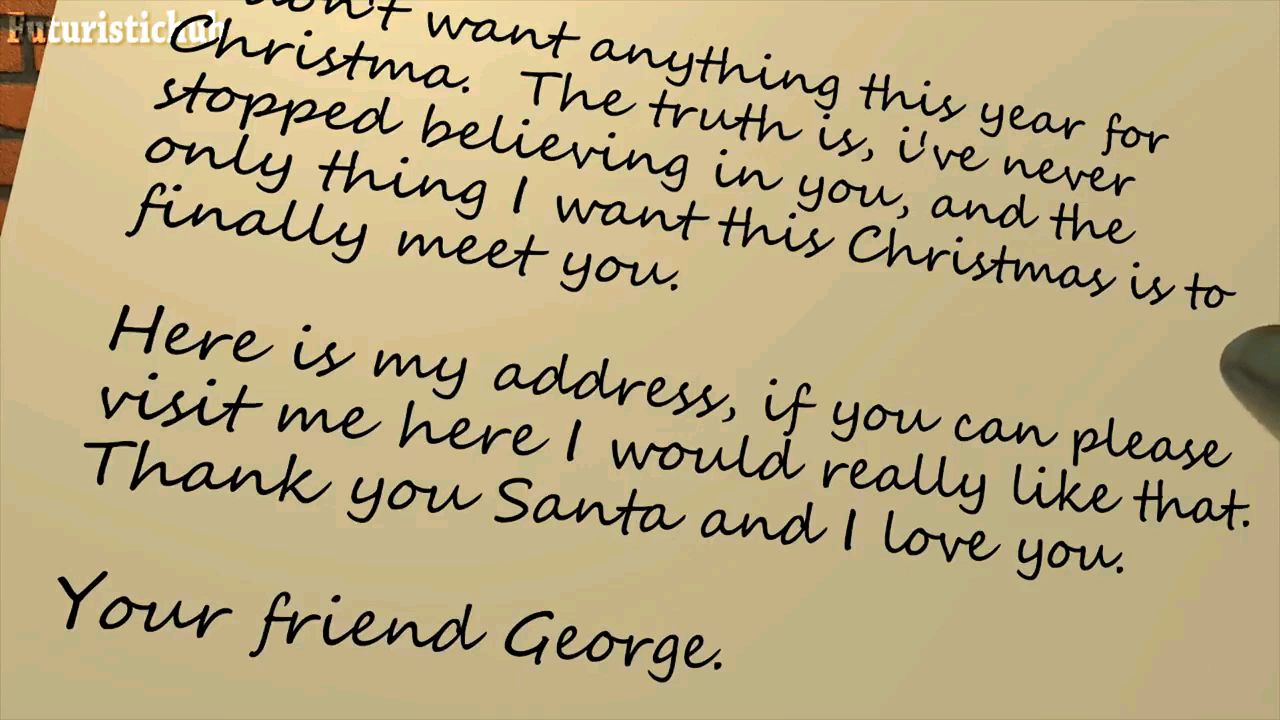 Futuristichub
don't want anything this year for
Christma. The truth is, i've never
stopped believing in you, and the
only thing I want this Christmas is to
finally meet you.
Here is my address, if you can please
visit me here I would really like that.
Thank you Santa and I love you.
Your friend George.